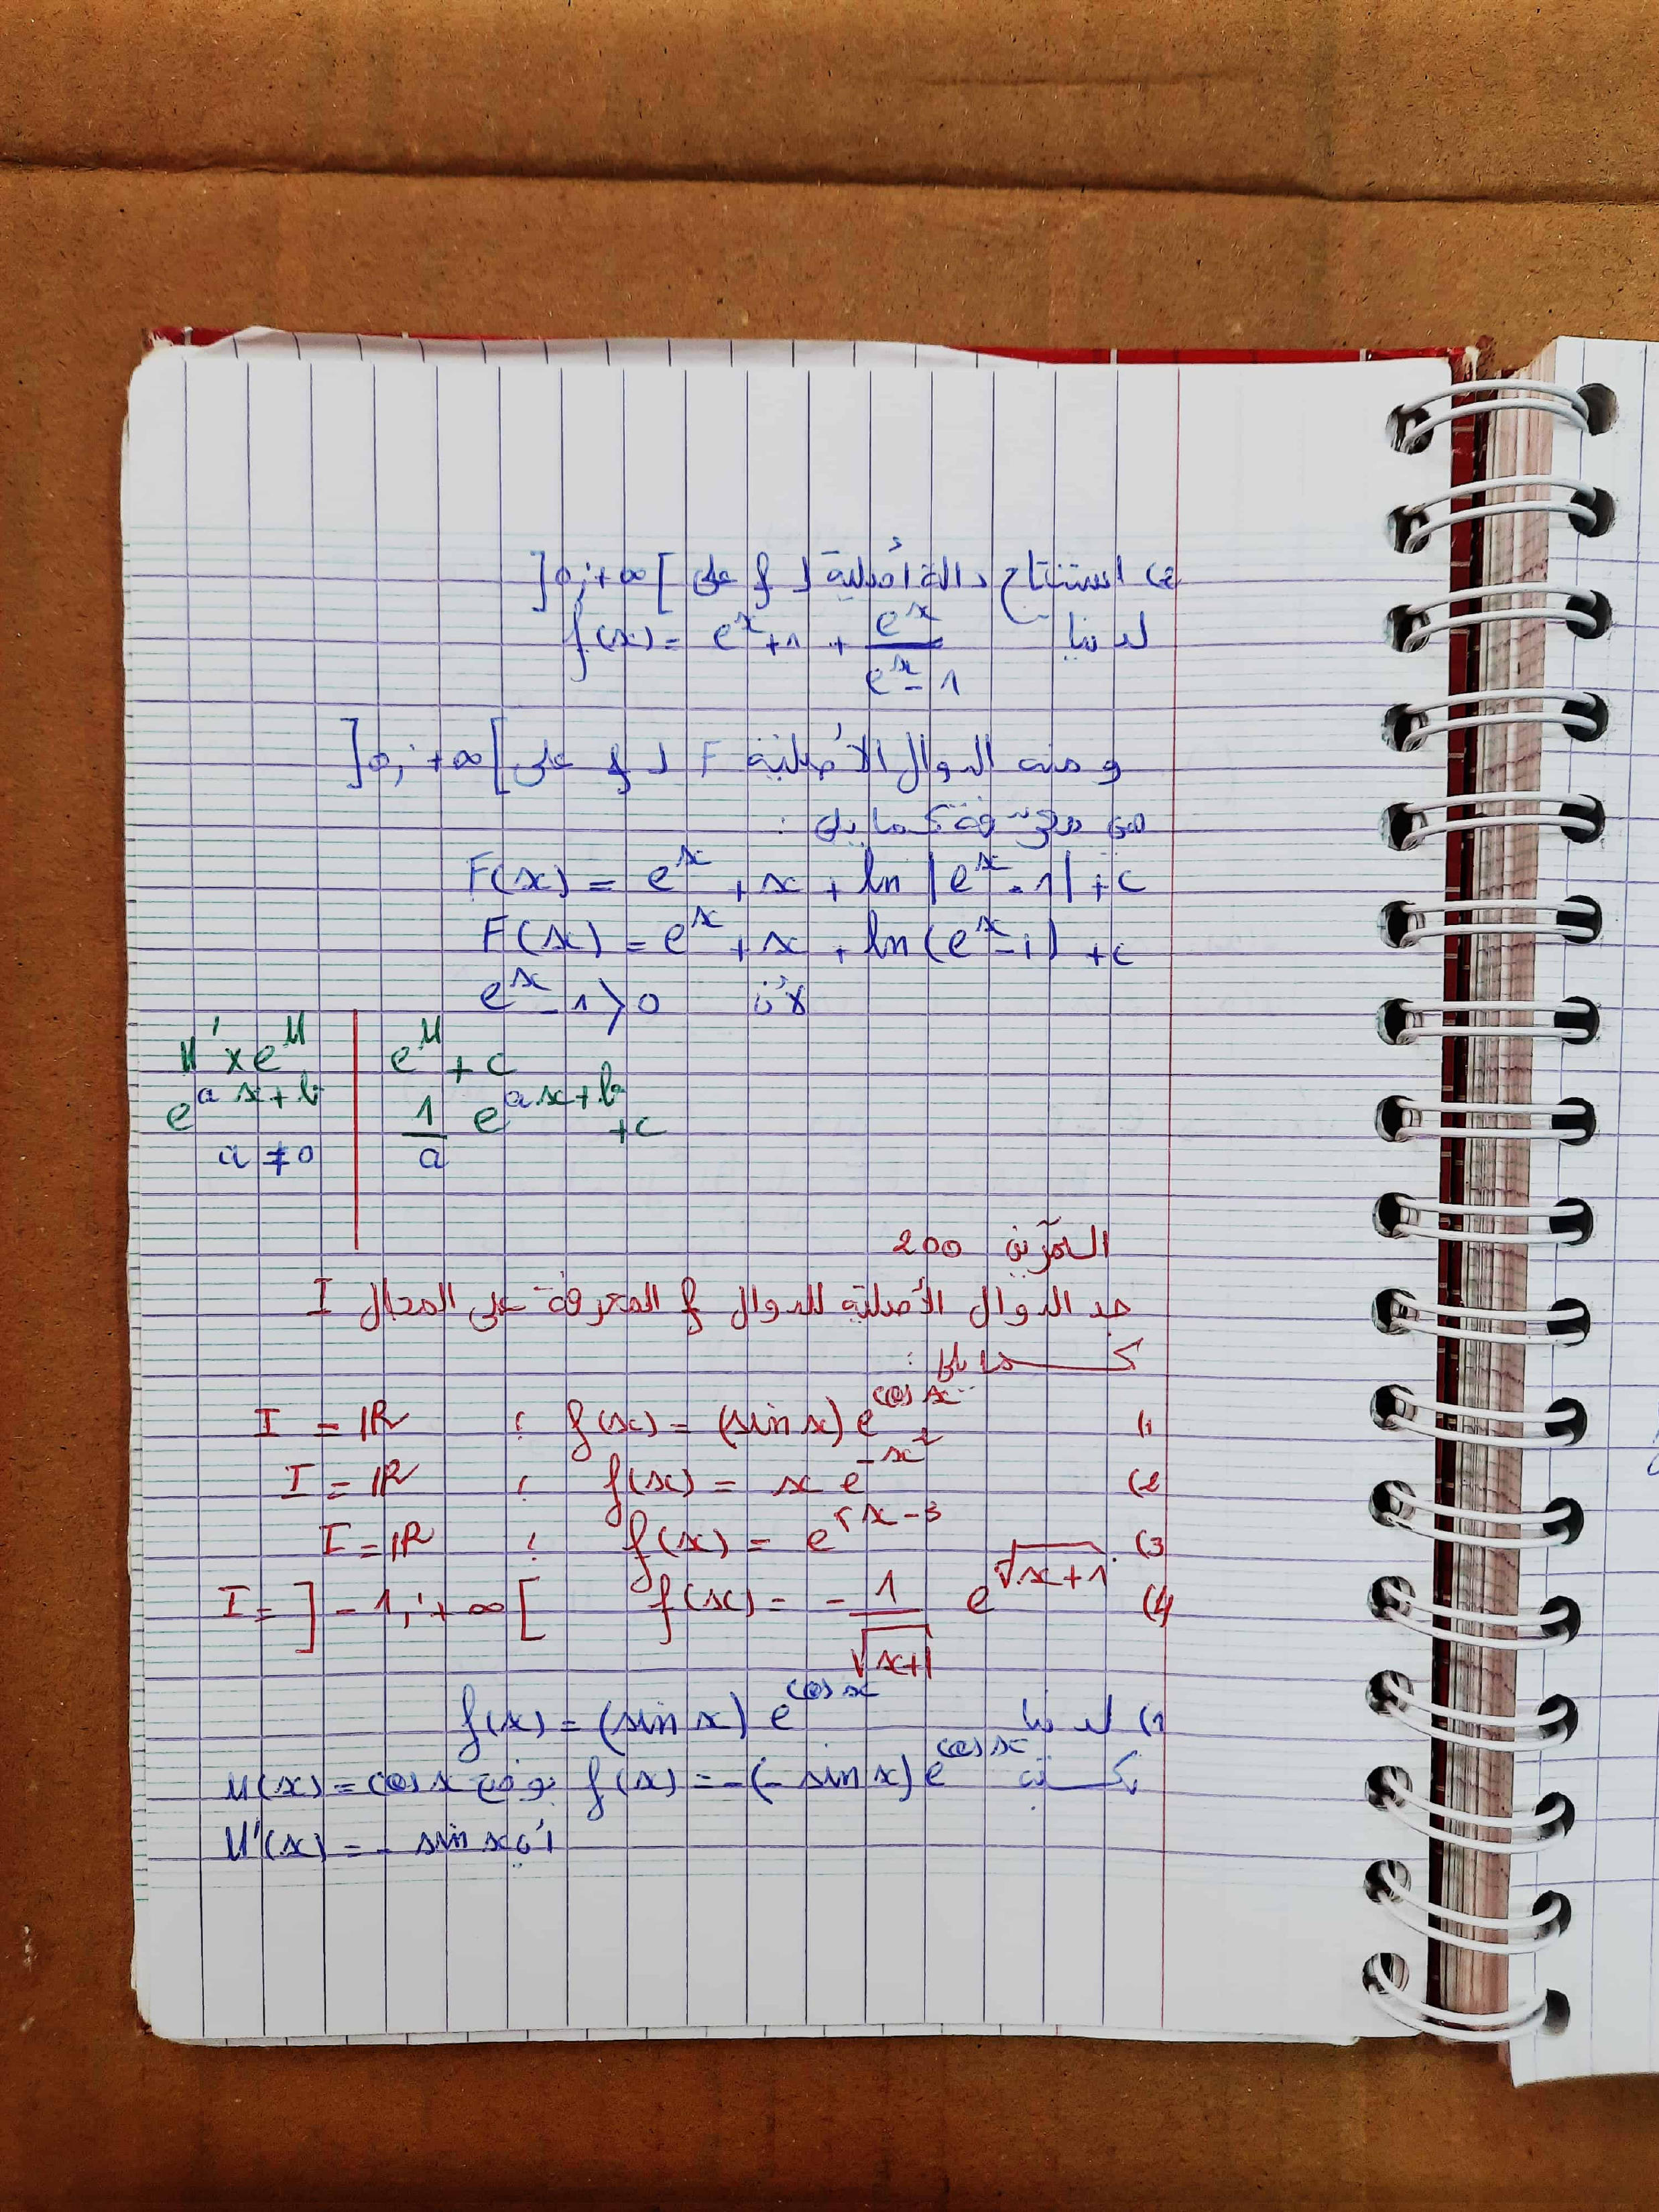 2) استنتاج دالة أصلية لـ f على ]0;+∞[
لدينا f(x) = e^x + 1 + e^x / (e^x - 1)
ومنه الدوال الأصلية F لـ f على ]0;+∞[
هي معرّفة كما يلي :
F(x) = e^x + x + ln |e^x - 1| + c
F(x) = e^x + x + ln (e^x - 1) + c
لأن e^x - 1 > 0
u' × e^u | e^u + c
e^(ax+b) | 1/a e^(ax+b) + c
a ≠ 0
التمرين 200
جد الدوال الأصلية للدوال f المعرفة على المجال I
كما يلي :
1) f(x) = (sin x) e^(cos x) ; I = ℝ
2) f(x) = x e^(-x²) ; I = ℝ
3) f(x) = e^(x-3) ; I = ℝ
4) f(x) = - 1/√(x+1) e^(√(x+1)) I = ]-1;+∞[
1) لدينا f(x) = (sin x) e^(cos x)
f(x) = -(- sin x) e^(cos x) نضع u(x) = cos x
أي u'(x) = - sin x